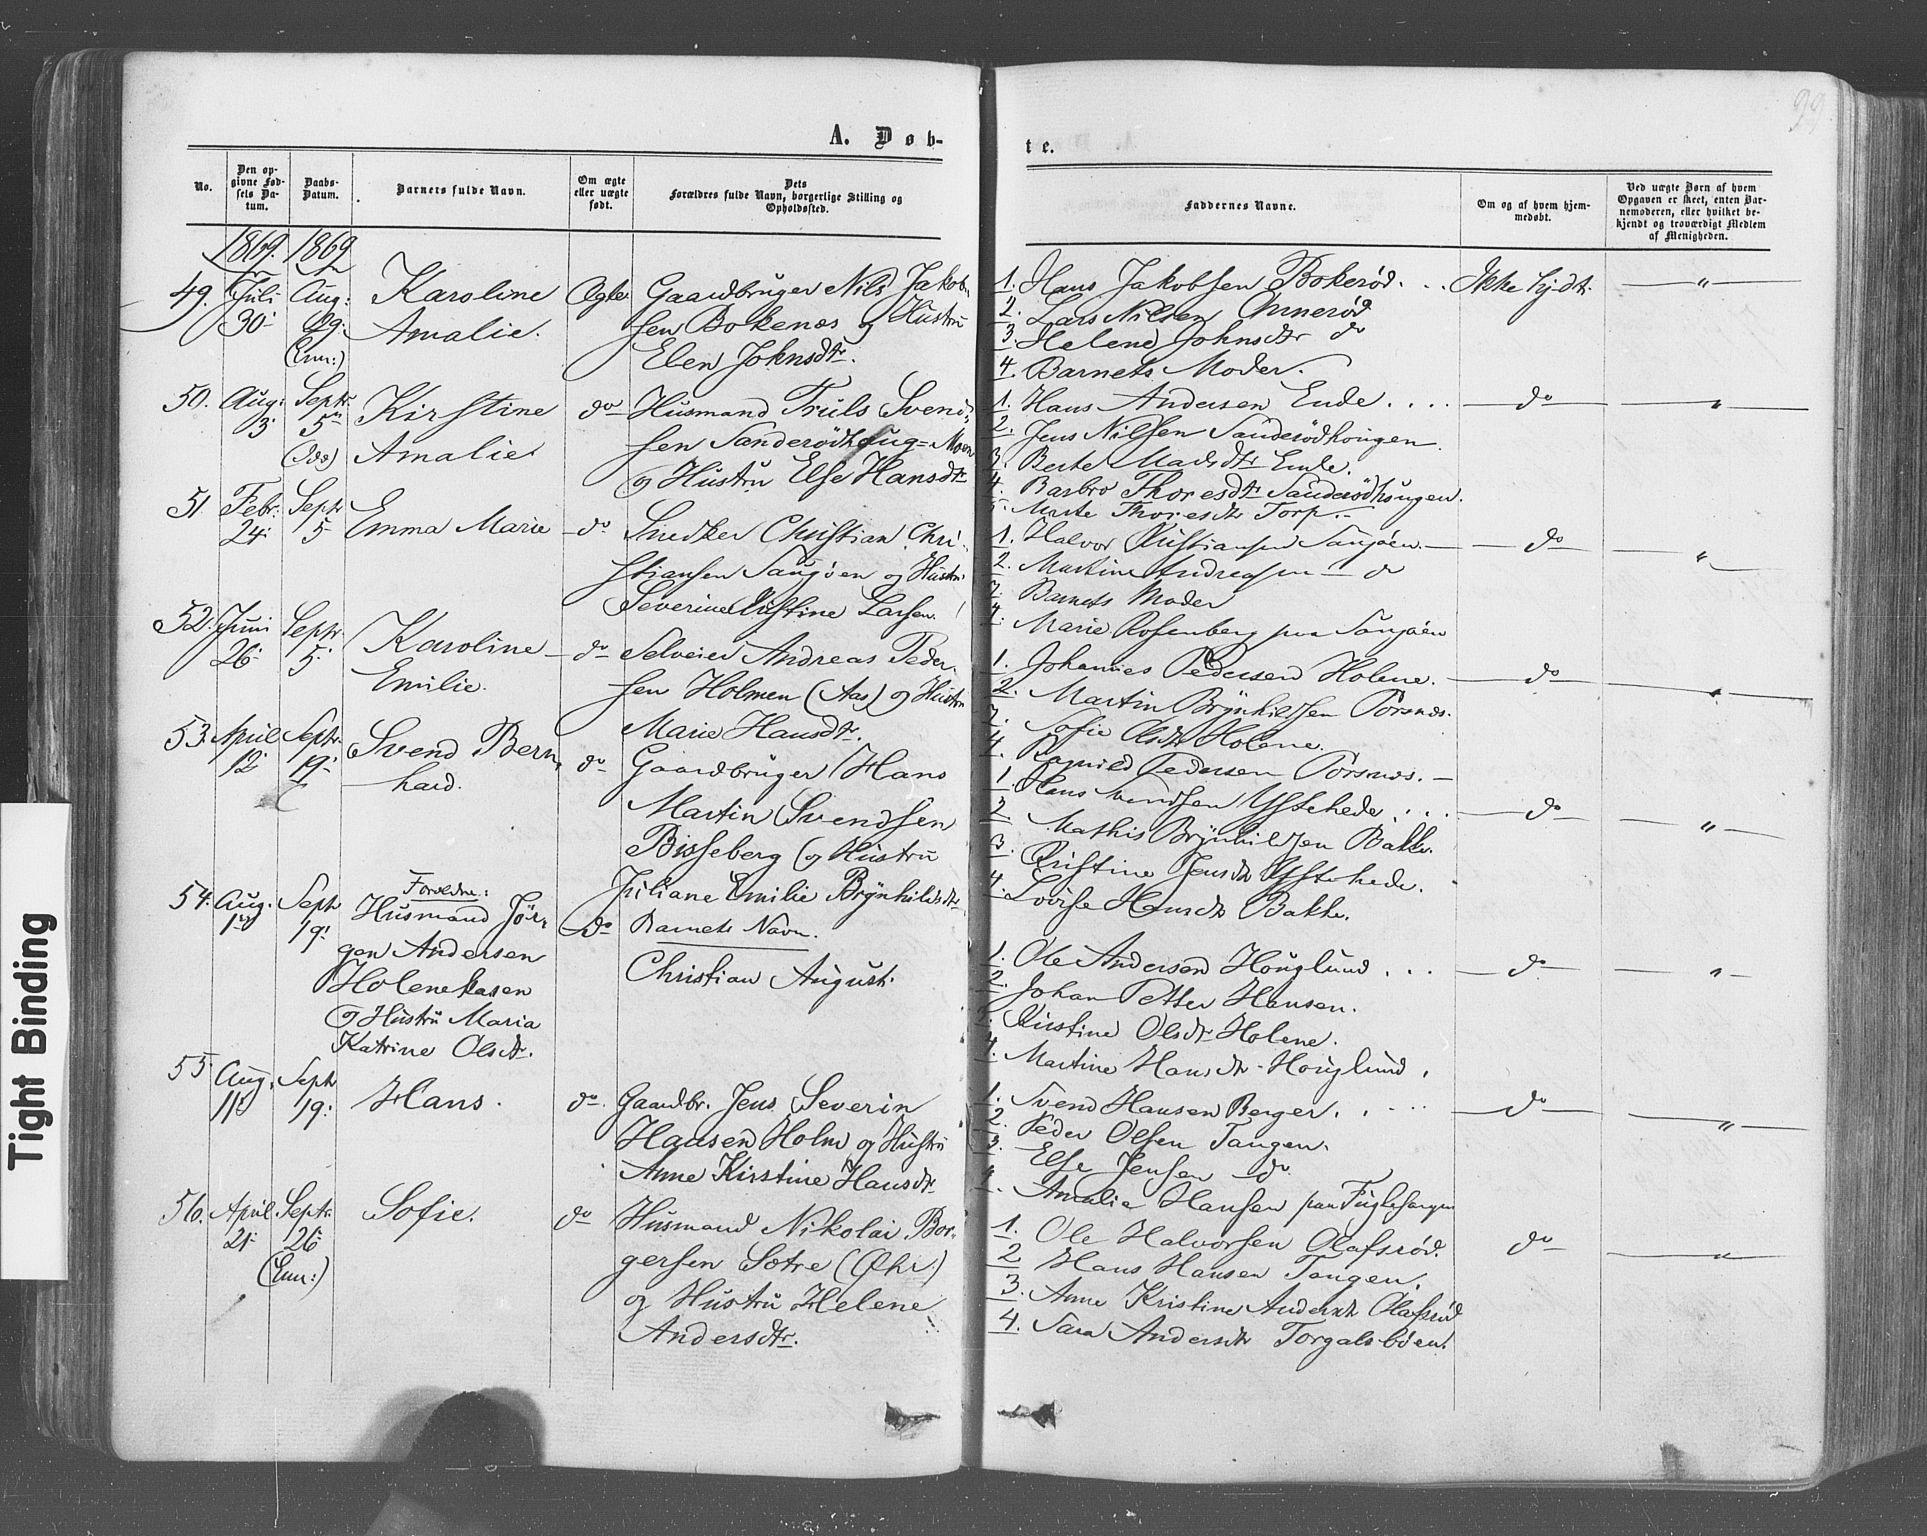 29
A. Døb-
te.
No.
Den opgivne Fødsels Datum.
Daabs-Datum.
Barnets fulde Navn.
Om ægte eller uægte født.
Dets Forældres fulde Navn, borgerlige Stilling og Opholdssted.
Faddernes Navne.
Om og af hvem hjemmedøbt.
Ved uægte Børn af hvem Opgaven er skeet, enten Barnemoderen, eller hvilket bekjendt og troværdigt Medlem af Menigheden.
1869. 1869
49. Juli 30 Aug: 29: Karoline Amalie. Ægte
Gaardbruger Nils Jakob-
sen Bokenæs og Hustru
Elen Johnsdtr.
1. Hans Jakobsen Bokerød. . . Ikke hjdt. "
2. Lars Nilsen
3. Helene Johnsdtr do
4. Barnets Moder.
50. Aug: 3 Septr. 5 Kirstine Amalie do
Husmand Truls Svend-
sen Sanderødhaug=Moen
og Hustru Else Hansdtr
1. Hans Andersen Ende. . . . do "
2. Jens Nilssen Sanderødhougen.
3. Berte Madsdtr Ende.
4. Barbro Thoresdtr Sanderødhougen.
5. Marte Thoresdtr Torp.
51. Febr: 24 Septr 5 Emma Marie do
Snedker Christian Chri-
stiansen Saugøen og Hustru
Severine Kristine Larsen.
1. Halvor Kristiansen Saugøen. do "
2. Martine Andreasen do
3. Barnets Moder
4. Marie Rosenberg paa Saugøen
52. Juni 26 Septr 5. Karoline Emilie. do
Selveier Andreas Peder-
sen Holmen (Aas) og Hustru
Marie Hansdtr.
1. Johannes Pedersen Holene. do "
2. Martin Brynhildsen Torsnæs.
3. Sofie Olsdtr Holene.
4. Ragnild Pedersen Torsnæs.
53. April 12 Septr. 19 Svend Bern-
hard. do
Gaardbruger Hans
Martin Svendsen
Bisseberg og Hustru
Juliane Emilie Brynhildsdtr
1. Hans Svendsen Ystehede. . . . do "
2. Mathis Brynhildsen Bakke.
3. Kristine Jensdtr Ystehede.
4. Lovise Hansdtr Bakke.
54. Aug. Septr 19.
Forældre:
Husmand Jør-
gen Andersen
Holenekasen
og Hustru Maria
Katrine Olsdtr.
do Barnets Navn.
Christian August.
1. Ole Andersen Houglund. . . do "
2. Johan Petter Hansen.
3. Kirstine Olsdtr Holene.
4. Martine Hansdtr Houglund.
55. Aug. 11 Septr 19. Hans. do
Gaardbr. Jens Severin
Hansen Holm og Hustru
Anne Kirstine Hansdtr
1. Svend Hansen Berger. . . . do "
2. Peder Olsen Tangen.
3. Else Jensen do
4. Amalia Hansen paa Fuglesangen
56. April 21 Septr. 26 Sofie. do
Husmand Nikolai Bor-
gersen Sætre
og Hustru Helene
Andersdtr.
1. Ole Halvorsen Olafsrød. do "
2. Hans Hansen Tangen.
3. Anne Kristine Andersdtr Olafsrød
4. Sara Andersdtr Torgalsbøen.
Tight Binding